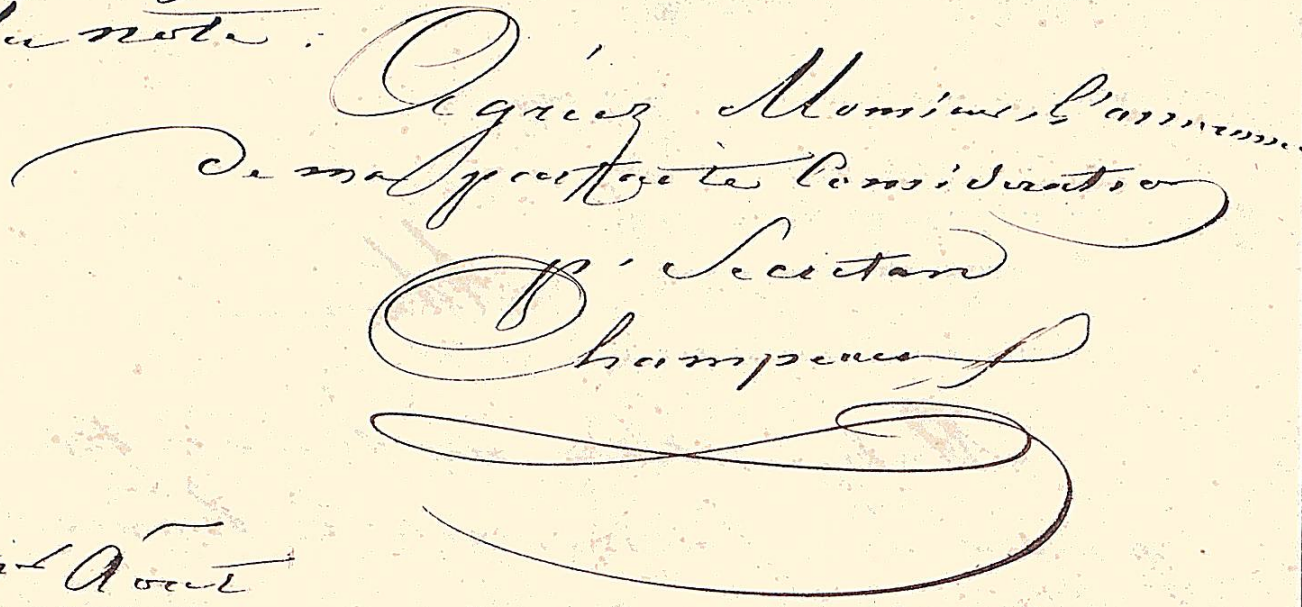 note .
Agréez Monsieur, l'assurance
De ma parfaite Consideration
Secretan
Août